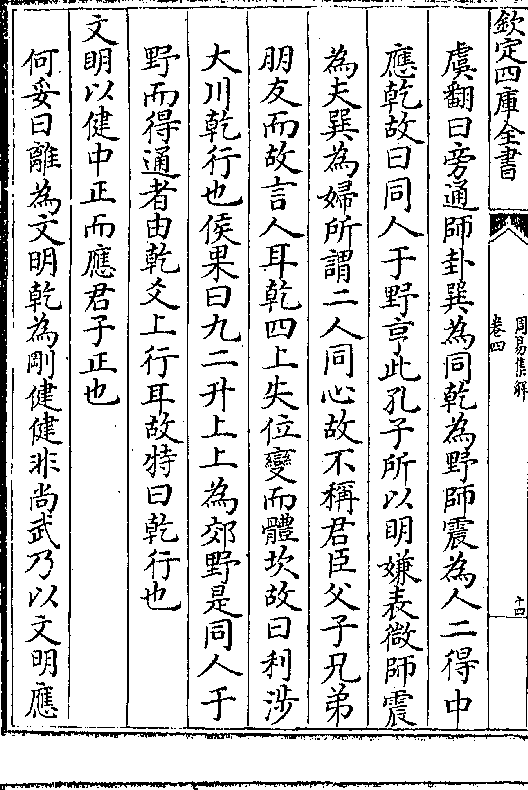 欽定四庫全書
周易集解
卷四
十四
虞翻曰旁通師卦巽為同乾為野師震為人二得中
應乾故曰同人于野亨此孔子所以明嫌表微師震
為夫巽為婦所謂二人同心故不稱君臣父子兄弟
朋友而故言人耳乾四上失位變而體坎故曰利涉
大川乾行也侯果曰九二升上上為郊野是同人于
野而得通者由乾爻上行耳故特曰乾行也
文明以健中正而應君子正也
何妥曰離為文明乾為剛健健非尚武乃以文明應